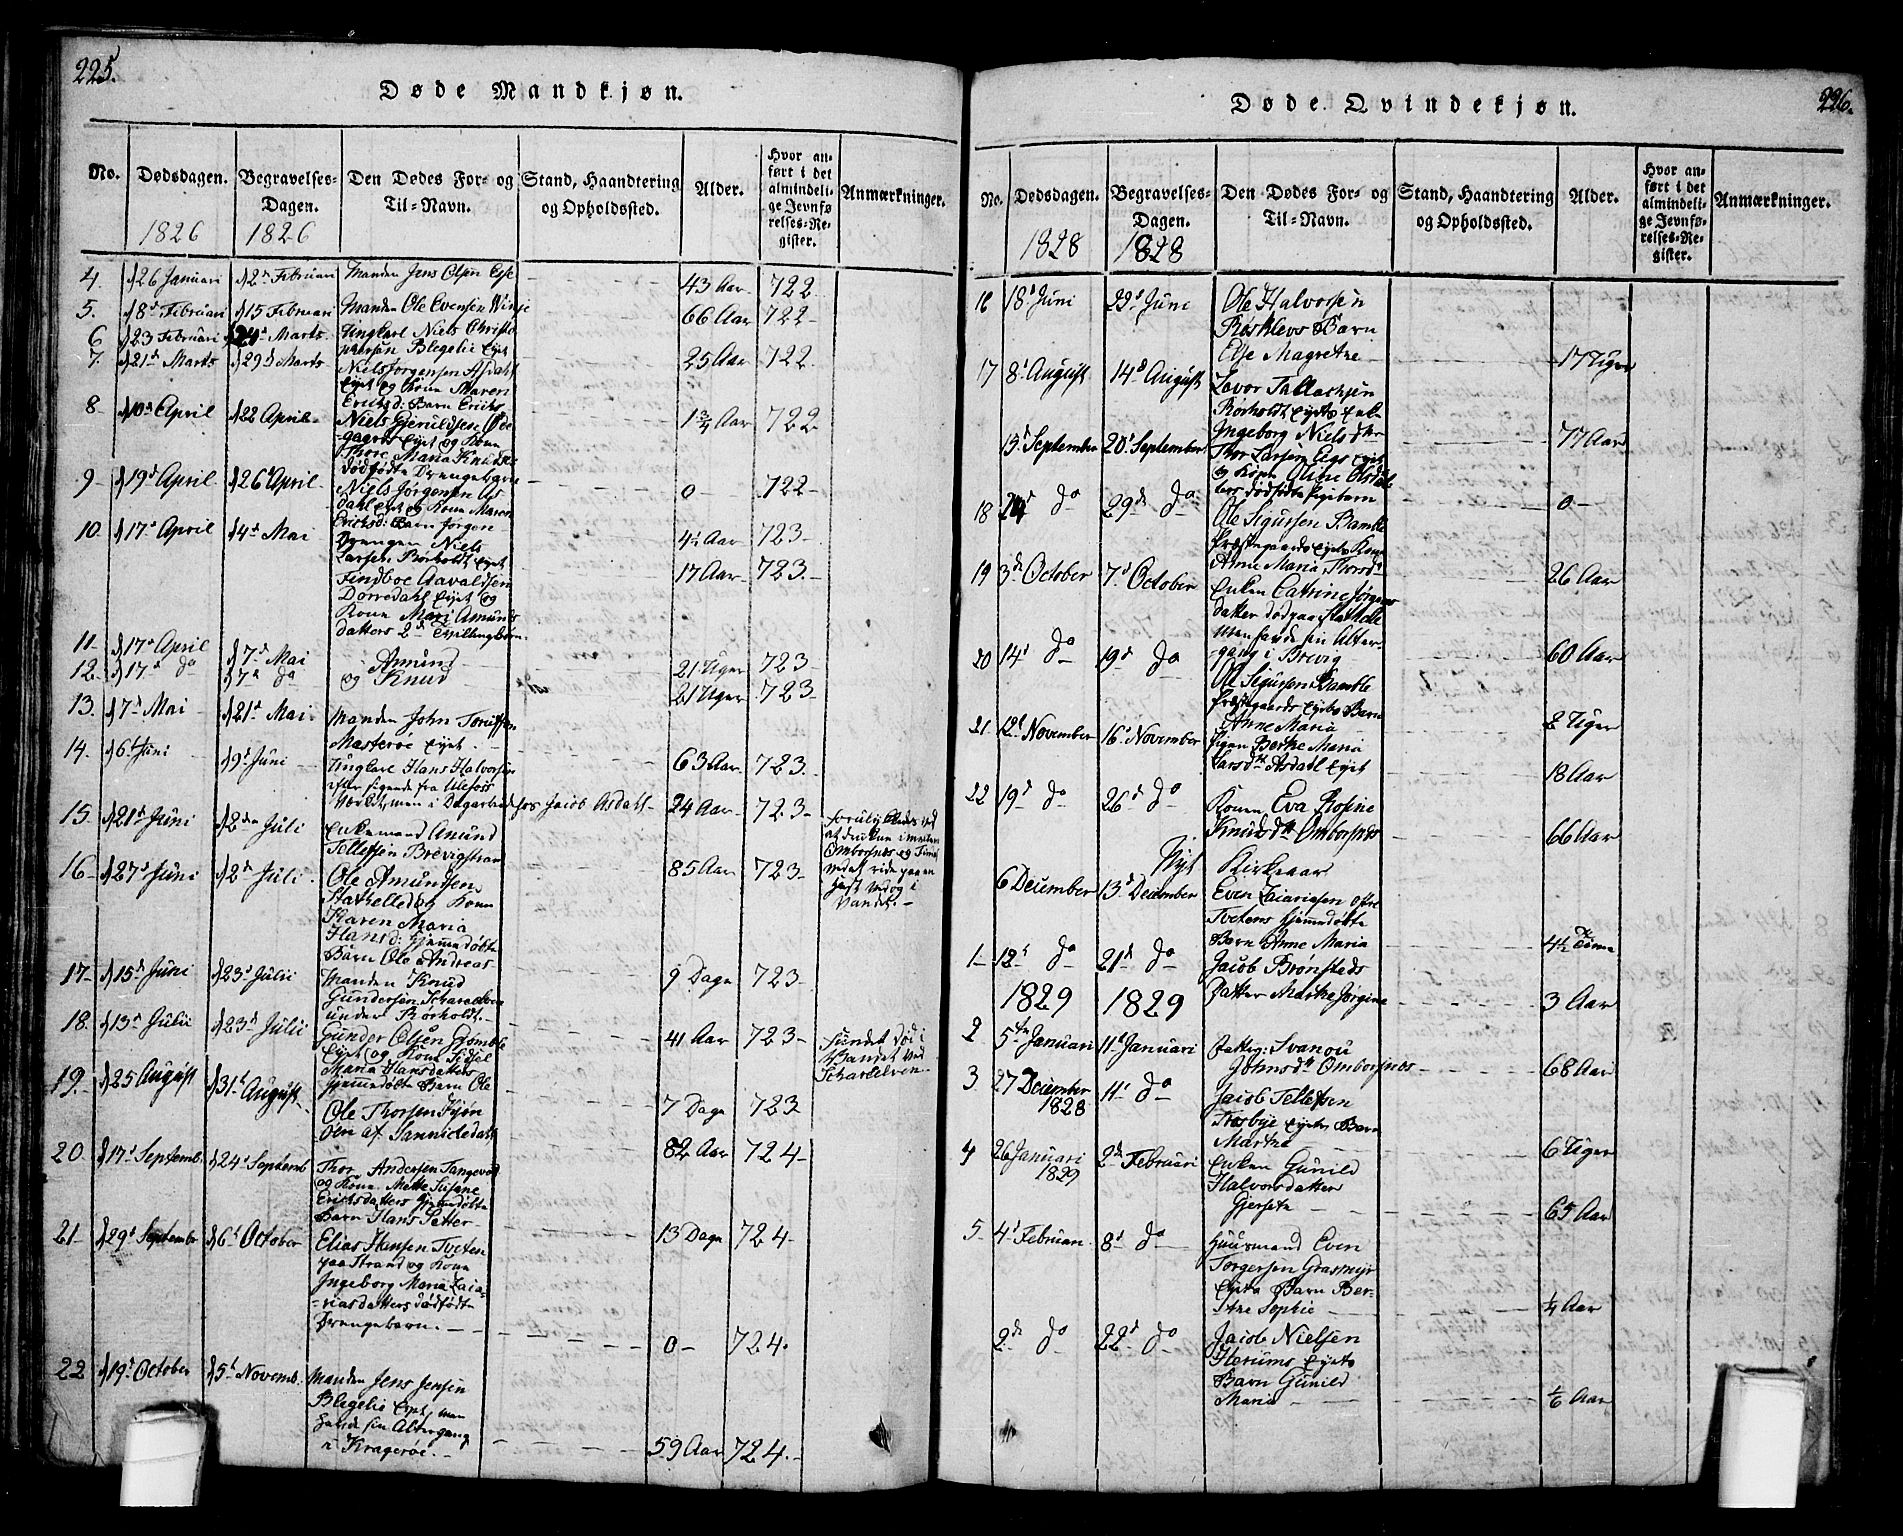 225.
Døde Mandkjøn.
No.
Dødsdagen.
1826
Begravelses-
Dagen.
1826
Den Dødes For- og
Til-Navn.
Stand, Haandtering
og Opholdssted.
Alder.
Hvor an-
ført i det
almindeli-
ge Jevnfø-
relses-Re-
gister.
Anmærkninger.
4. 26 Januari 2 Februari Manden Jens Olsen 43 Aar 722
5. 8d Februari 15 Februari Manden Ole Evensen Winje 66 Aar 722
6 23 Februari Marts Ungkarl Niels Christo
phersen Blegelie Eyet 25 Aar 722
7. 21d Marts 29d Marts Niels Jørgensen Asdahl
Eyet og Kone Maren
Ericksd: Barn Erick 1¾ Aar 722
8 10d April 22 April Niels Gjeruldsen Øde
gaards Eyet og Kone
Thore Maria Knudsd
dødfødte Drengebarn 0 722
9 19d April 26 April Niels Jørgensen As
dahl Eyet og Kone Maren
Ericksd: Barn Jørgen 4½ Aar 723
10. 17d April 4d Mai Drengen Niels
Larsen Rørholdt Eyet 17 Aar 723
Findboe Aavaldsen
Dørredahl Eyet og
Kone Mari Amunds
datters 2d Tvillingbørn
11 17d April 7d Mai Amund 21 Uger 723
12 17d do 7d do og Knud 21 Uger 723
13. 7d Mai 21d Mai Manden John
Masterøe Eyet 63 Aar 723
14. 6t Juni 9d Juni Ungkarl Hans Halvorsen
efter sigende fra Ulefoss
i Dagarbeide hos Jacob Asdahl 24 Aar 723
15. 21d Juni 2den Juli Enkemand Amund
Tellefsen Brevigstrand 85 Aar 723
forulykkedes ved
at drukne imellem
Omborsnes og
ved at ride paa en
Hest ud og i
Vandet.
16 27d Juni 2d Juli Ole Amundsen
Stathelle og Kone
Karen Maria
Hansd: hjemmedøbte
Barn Ole Andreas 9 Dage 723
17 15d Juni 23d Julii Manden Knud
Gundersen
under Rørholdt 41 Aar 723
fundet død i
Vandet ved
18. 13d Julii 23d Julii Gunder Olsen
Eyet og Kone
Maria Hansdatters
hjemmedøbt Barn Ole 7 Dage 723
19. 25 August 31t August Ole Thorsen Kjøn
øen af Sannikedahl 82 Aar 724
20 17d Septemb. 24d Septemb Thor Andersen Tangevod
og Kone Mette Susane
Ericksdatters hjemmedøbte
Barn Hans Petter 13 Dage 724
21 29d September 6t October Elias Hansen Tveten
paa Strand og Kone
Ingeborg Maria Zaca-
riasdatters dødfødte
Drengebarn. 0 724.
22 19d October 5t Novemb. Manden Jens Jensen
Blegelie Eyet, man
havde sin Altergang
i Kragerøe. 59 Aar 724.
226.
Døde Qvindekjøn.
No.
Dødsdagen.
1828
Begravelses-
Dagen.
1828
Den Dødes For- og
Til-Navn.
Stand, Haandtering
og Opholdssted.
Alder.
Hvor an-
ført i det
almindeli-
ge Jevnfø-
relses-Re-
gister.
Anmærkninger.
16 18d Juni 22d Juni Ole Halvorsen
Røsklevs Barn
Else Magrethe 17 Uger
17 8d August 14d August Zavor Tallachsen
Rørholdt Eyets Enke
Ingeborg Nielsdtr 77 Aar
13d September 20d September Thor Larsen Eyet
og Kone Oline Olsdat
ters dødfødte Pigebarn 0
18 do 29de do Ole Sigursen Bamble
Præstegaards Eyets Kone
Anne Maria Thorsdr 26 Aar
19 3de October 7d October Enken Catrine Jørgens
datter død paa Stathelle
Men havde sin Alter-
gang i Brevig 60 Aar
20 14d do 19d do Ole Sigursen Bamble
Præstegaards Eyets Barn
Anne Maria 8 Uger
21 12d November 16d November Pigen Berthe Maria
Larsdtr Asdahl Eyet 18 Aar
22 19d do 26d do Konen Eva Rosine
Knudsdtr Omborsnes 66 Aar
Nyt Kirkeaar
6 December 13d December Even Zacariasen
Tvetens hjemmedøbte
Barn Anne Maria 4½ Time
1 12d do 21d do Jacob Brønsteds
Datter Marthe Jørgine 3 Aar
1829 1829
2 5te Januari 11d Januari Fattig: Svanou
Johnsdtr Omborsnes 68 Aar
3 27 December
1828 11t do Jacob Tellefsen
Trosbye Eyets Barn
Marthe 6 Uger
4 26 Januari
1829 2de Februari Enken Gunild
Halvorsdatter
Gjersete 65 Aar
5 4d Februari 8d do Huusmand Even
Torgersen Grasmyr
Eyets Barn Ber-
the Sophie ¼ Aar
2de do 22d do Jacob Nielsen
Herums Eyets
Barn Gunild
Maria ⅙ Aar